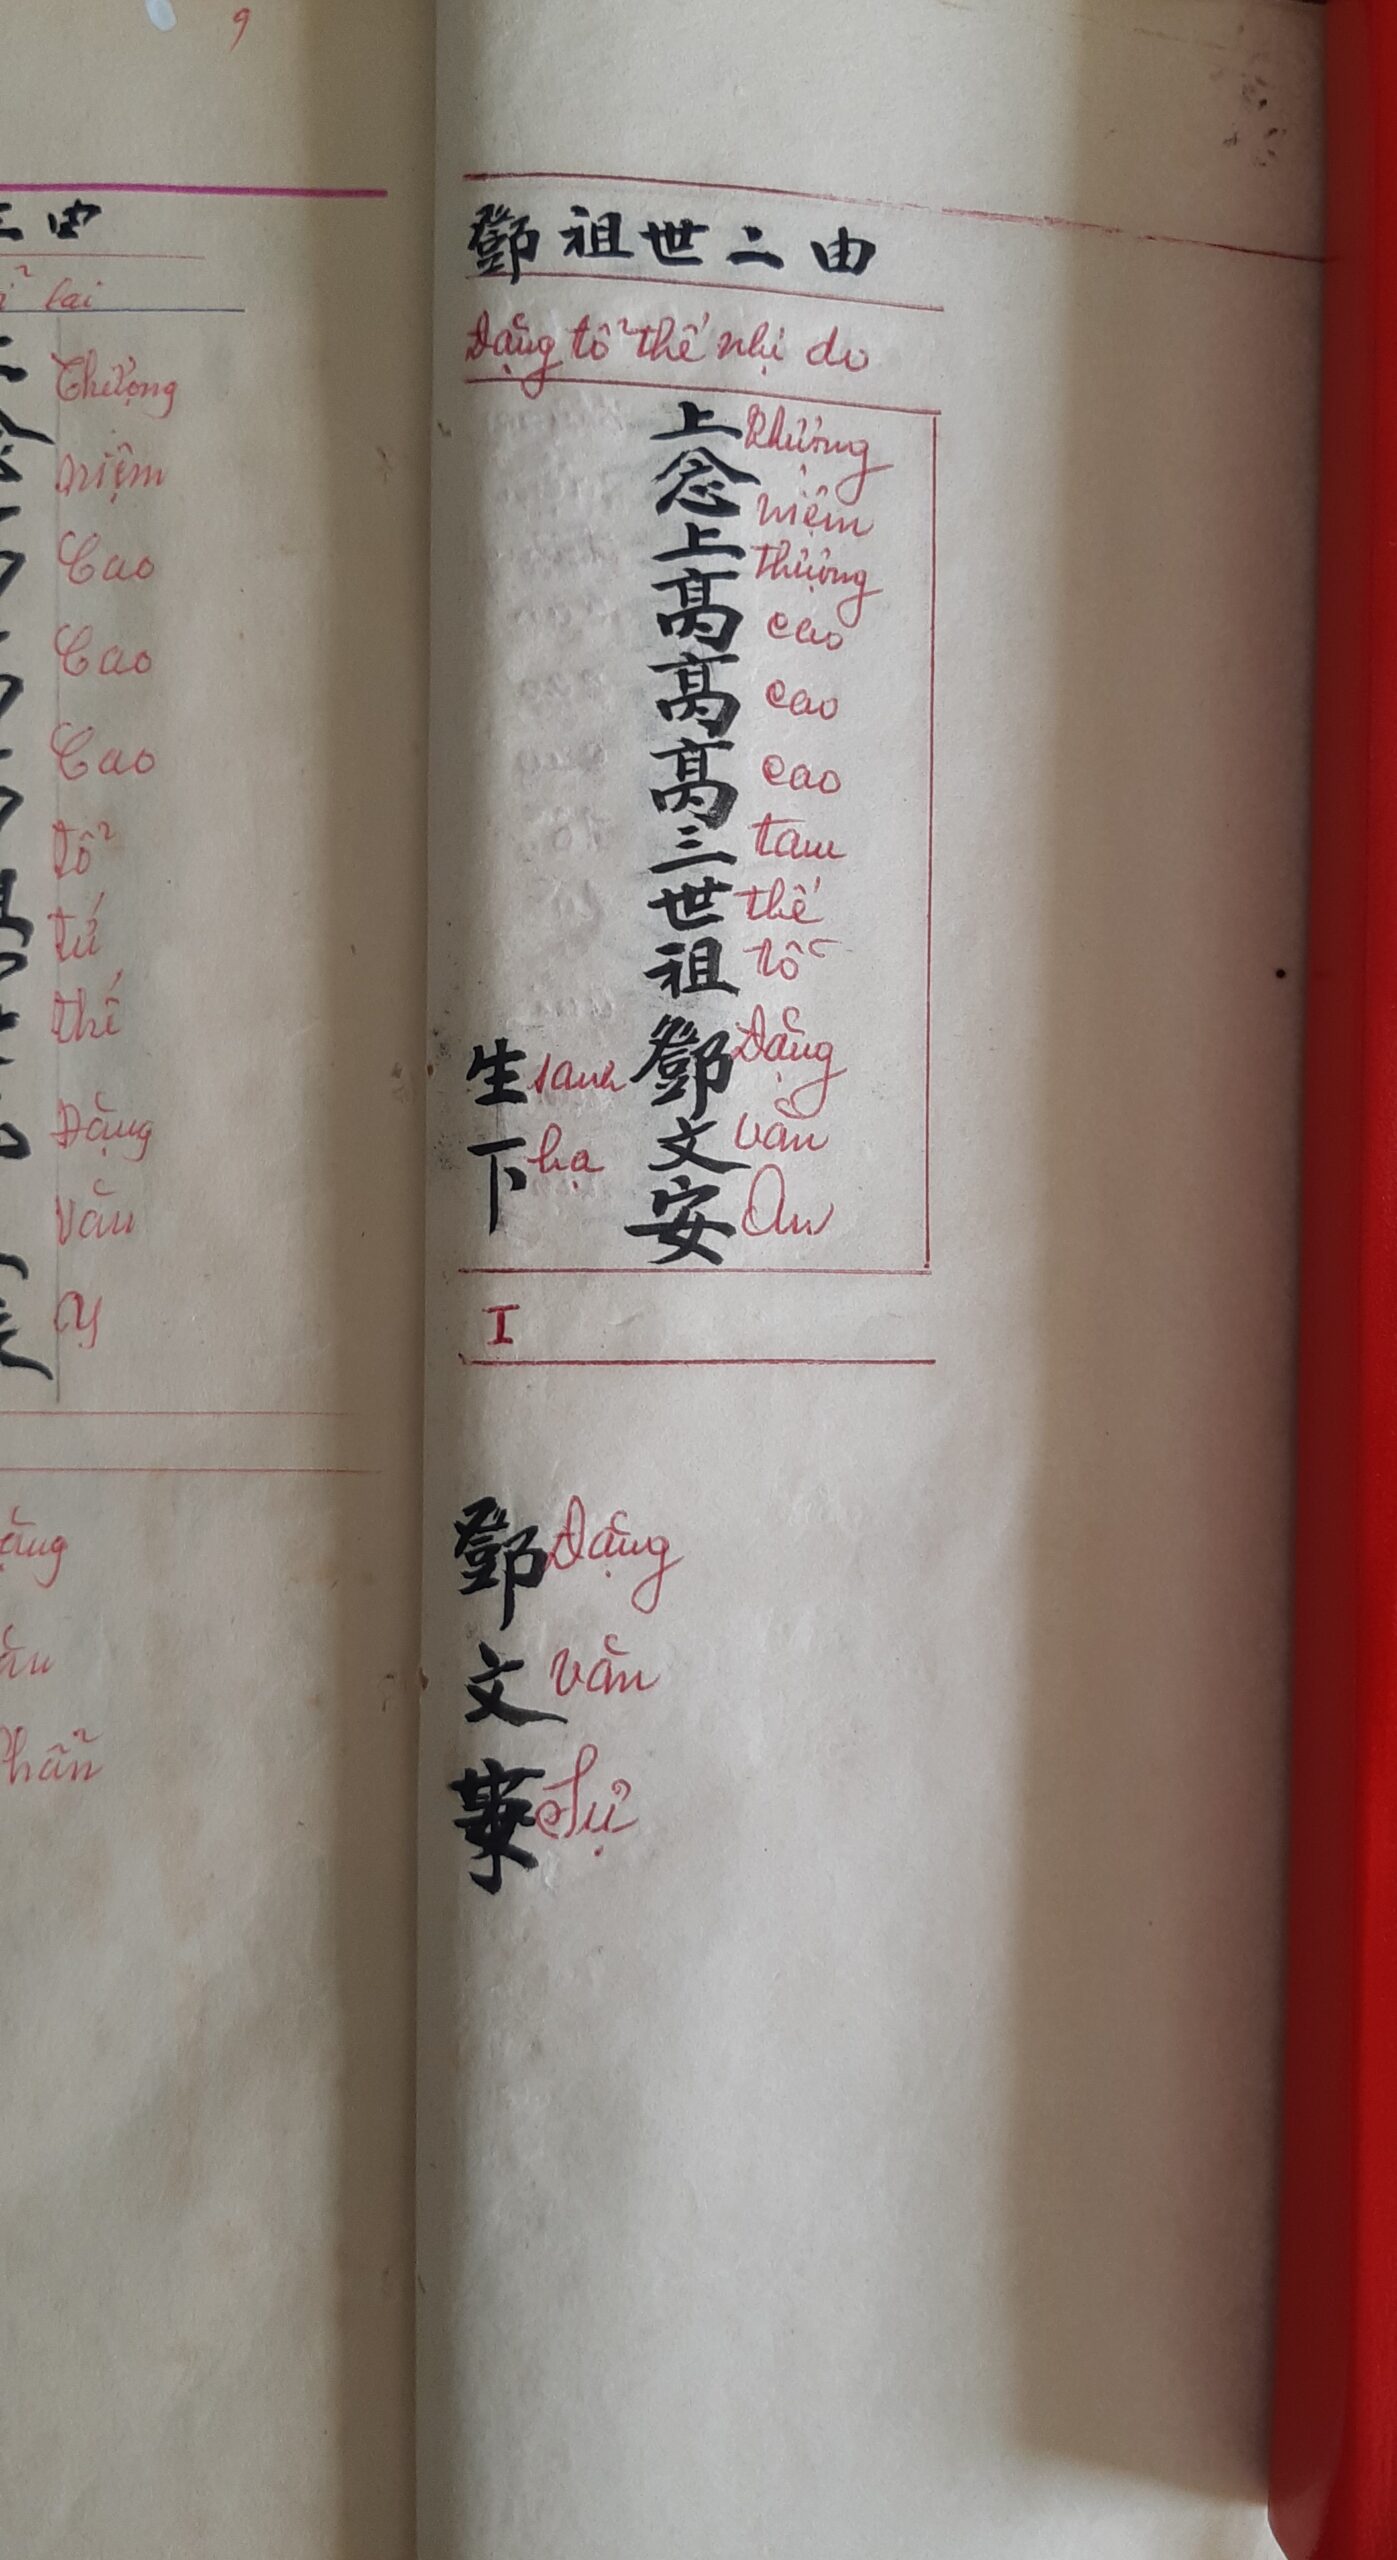 9
由
lai
Thượng
niệm
Cao
Cao
Cao
tổ
tứ
thế
Đặng
Văn
Ý
鄧祖世二由
Đặng tổ thế nhị do
上念上高高高三世祖鄧文安
Thượng
niệm
thượng
cao
cao
cao
tam
thế
tổ
Đặng
văn
An
生下
sanh
hạ
I
鄧文事
Đặng
văn
Sự